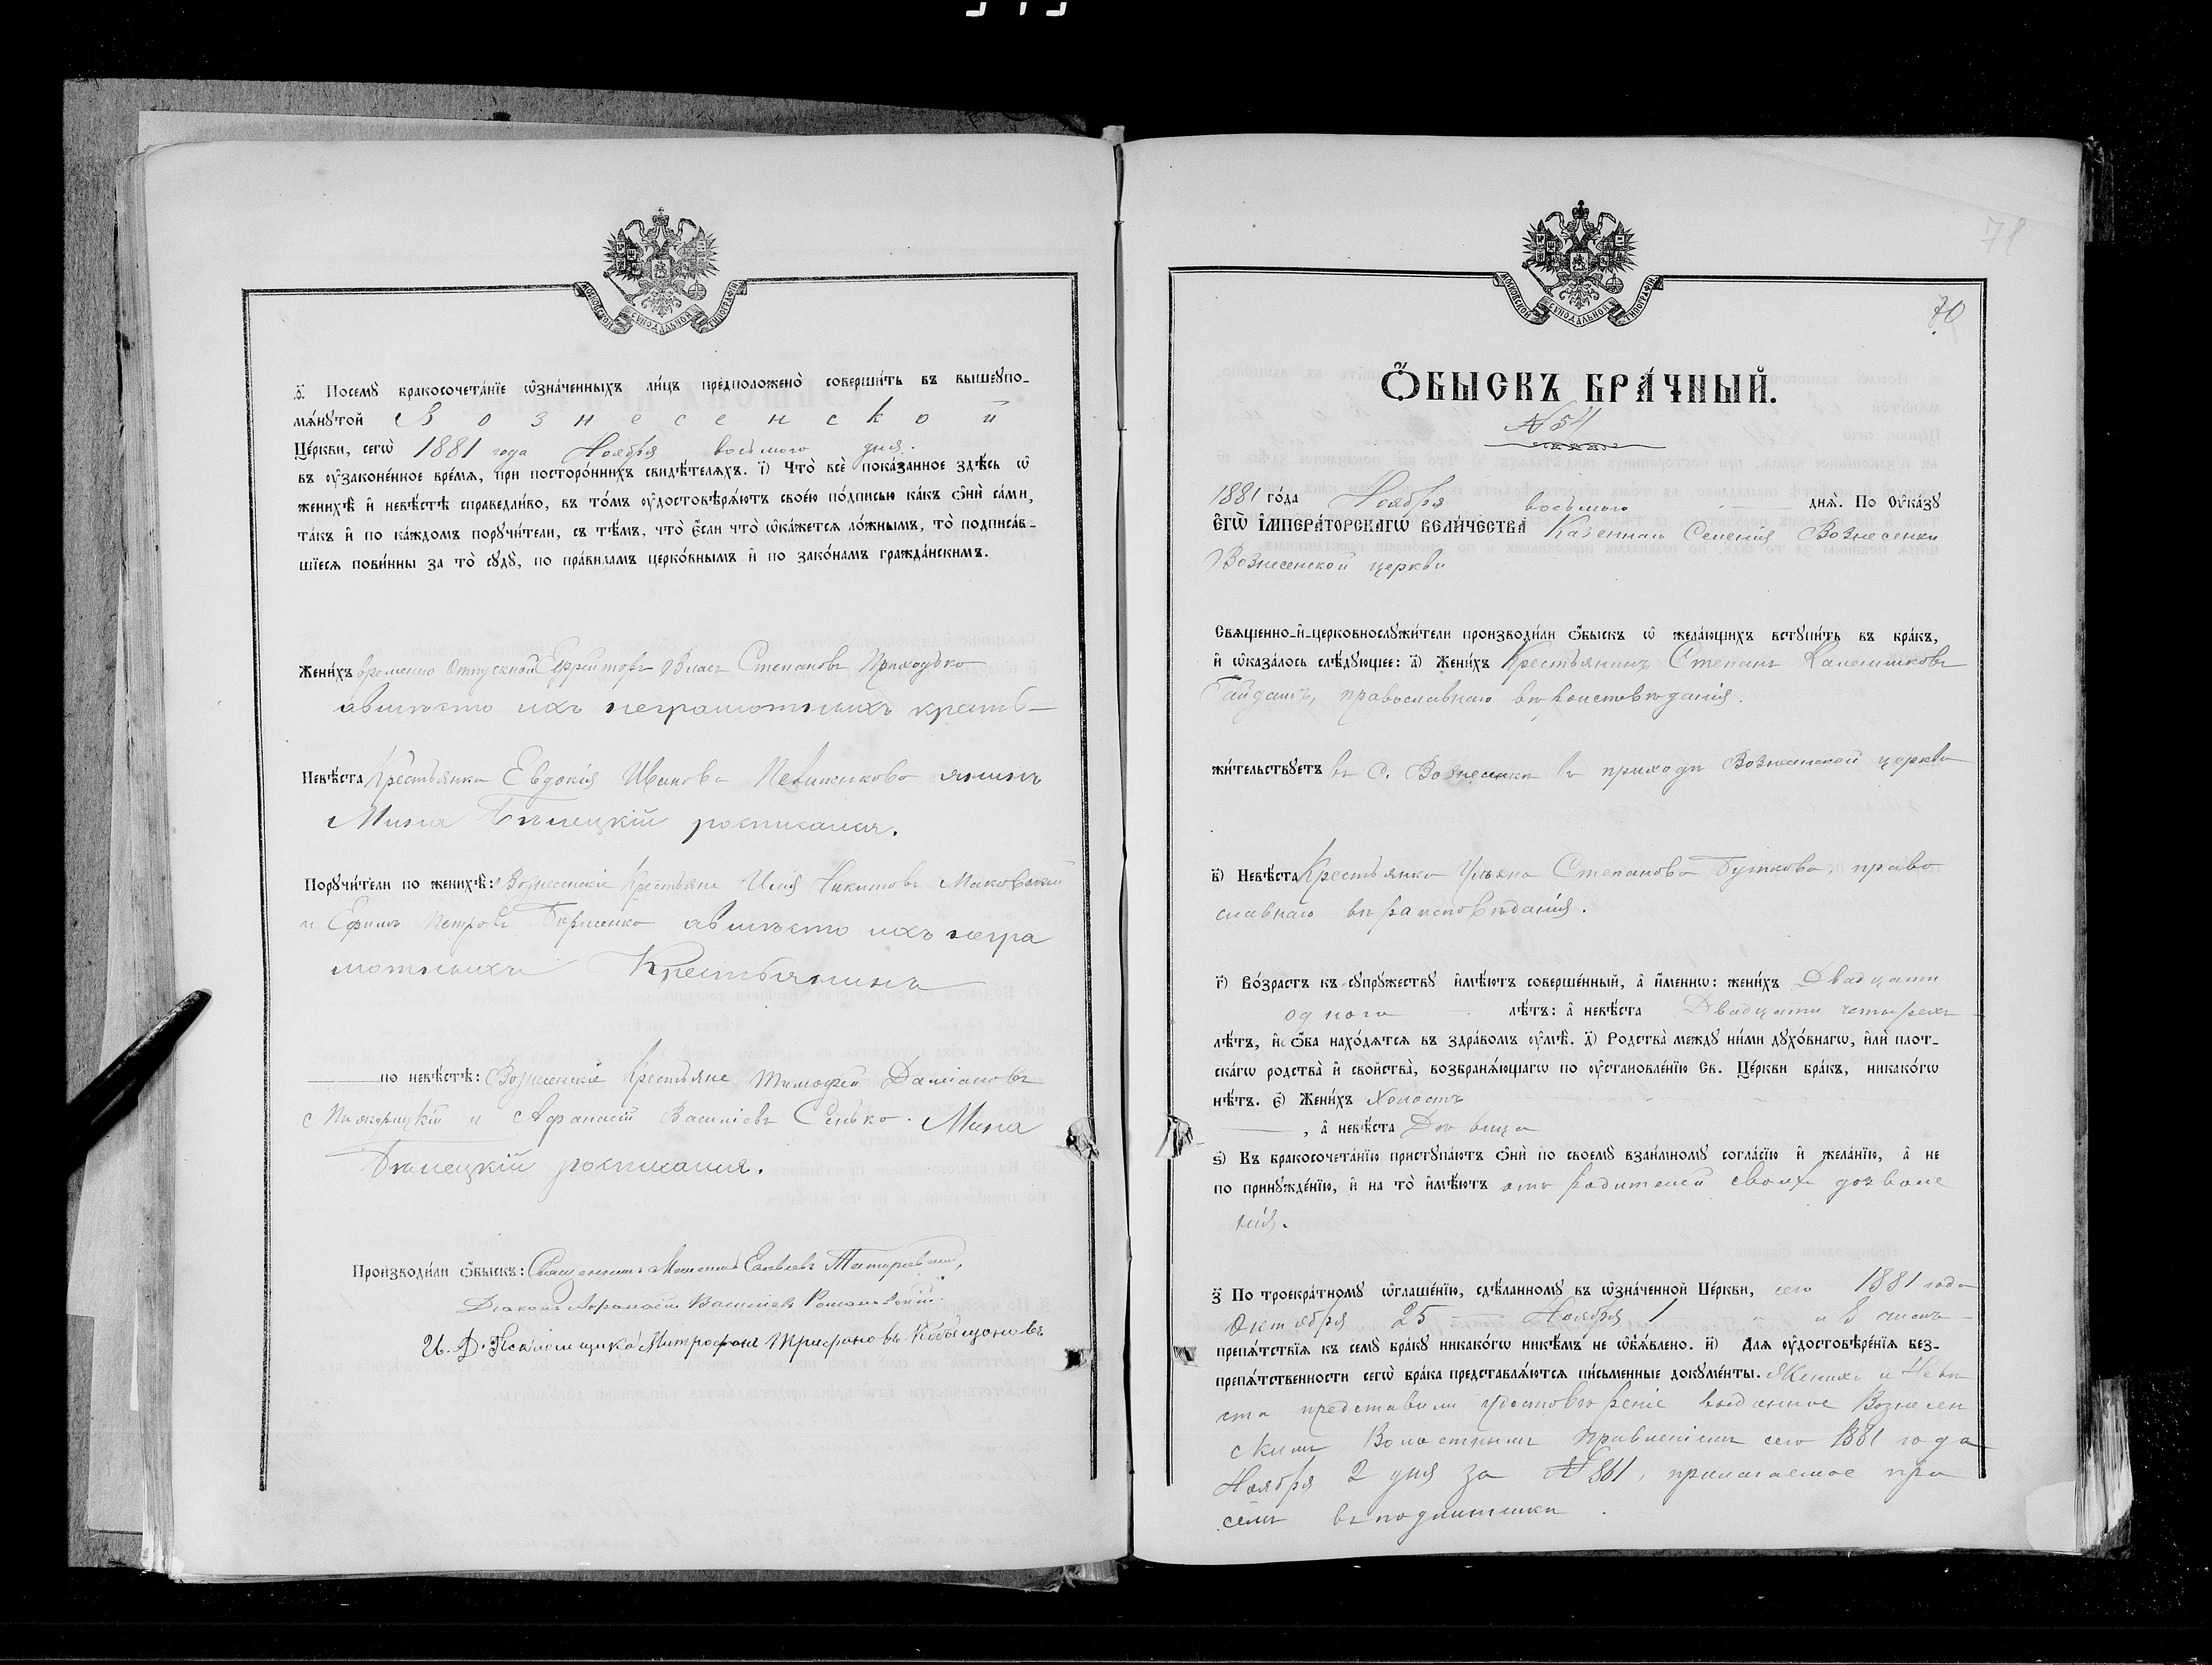 МОСКОВСКОЙ СѴНОДАЛЬНОЙ ТИПОГРАФІИ
ѳ҃. Посемꙋ̀ бракосочета́нїе ѡ҆зна́ченныхъ ли́цъ предположено̀ соверши́ть въ вышеꙋпо-
мѧ́нꙋтой Вознесенской
Це́ркви, сегѡ̀ 1881 года Ноября восьмого дня.
въ ᲂу҆зако́ненное вре́мѧ, при посторо́ннихъ свидѣ́телѧхъ. і҃) Что̀ всѐ пока́занное здѣ́сь ѡ҆
женихѣ̀ и҆ невѣ́стѣ справедли́во, въ то́мъ ᲂу҆достовѣрѧ́ютъ свое́ю по́дписью ка́къ ѻ҆нѝ са́ми,
та́къ и҆ по ка́ждомъ порꙋчи́тели, съ тѣ́мъ, что̀ є҆́сли что̀ ѡ҆ка́жетсѧ ло́жнымъ, то̀ подписа́в-
шїесѧ пови́нны за то̀ сꙋдꙋ̀, по пра́виламъ церко́внымъ и҆ по зако́намъ гражда́нскимъ.
Жени́хъ временно отпускной Ефрейторъ Власъ Степановъ Приходько
авмѣсто ихъ неграмотныхъ кресть-
Невѣ́ста Крестьянка Евдокія Иванова янинъ
Мина Бѣлецкій росписался.
Порꙋчи́тели по женихѣ̀: Вознесенскіе Крестьяне Илія Никитовъ Маковскій
и Ефимъ Петровъ Борисенко авмѣсто ихъ негра
мотныхъ Крестьянинъ
по невѣ́стѣ: Вознесенскіе Крестьяне Тимофей Даміановъ
и Афанасій Василіевъ Сенько. Мина
Бѣлецкій росписался.
Производи́ли ѻ҆́быскъ: Священникъ
Діаконъ Афанасій Василіевъ Романовскій
И. Д. Псаломщика Митрофанъ Трифоновъ
МОСКОВСКОЙ СѴНОДАЛЬНОЙ ТИПОГРАФІИ
70
Ѻ҆́БЫСКЪ БРА́ЧНЫЙ.
№ 54
1881 го́да Ноября восьмого днѧ̀. По ᲂу҆ка́зꙋ
Є҆ГѠ̀ І҆МПЕРА́ТОРСКАГѠ ВЕЛИ́ЧЕСТВА Казеннаго Селенія Вознесенки
Вознесенской церкви
Свѧще́нно-и҆-церковнослꙋжи́тели производи́ли ѻ҆́быскъ ѡ҆ жела́ющихъ вступи́ть въ бра́къ,
и҆ ѡ҆каза́лось слѣ́дꙋющее: а҃) Жени́хъ Крестьянинъ Степанъ
Гайдашъ, православнаго вѣроисповѣданія.
жи́тельствꙋетъ въ С. Вознесенки въ приходѣ Вознесенской церкви
в҃) Невѣ́ста Крестьянка Ульяна Степанова Буткова, право
славнаго вѣроисповѣданія.
г҃) Во́зрастъ къ сꙋпрꙋ́жествꙋ и҆мѣ́ютъ соверше́нный, а҆ и҆́меннѡ: жени́хъ Двадцати
одного лѣ́тъ: а҆ невѣ́ста Двадцати четырехъ
лѣ́тъ, и҆ ѻ҆́ба нахо́дѧтсѧ въ здра́вомъ ᲂу҆мѣ̀. д҃) Родства̀ междꙋ ни́ми дꙋхо́внагѡ, и҆лѝ плот-
ска́гѡ родства̀ и҆ сво́йства, возбранѧ́ющагѡ по ᲂу҆становле́нїю Св. Це́ркви бра́къ, никако́гѡ
нѣ́тъ. є҃) Жени́хъ Холостъ
, а҆ невѣ́ста Дѣвица
ѕ҃) Къ бракосочета́нїю приступа́ютъ ѻ҆нѝ по своемꙋ̀ взаи́мномꙋ согла́сїю и҆ жела́нїю, а҆ не
по принꙋжде́нїю, и҆ на то̀ и҆мѣ́ютъ отъ родителей своихъ дозволе
нія.
з҃ По троекра́тномꙋ ѡ҆глаше́нїю, сдѣ́ланномꙋ въ ѡ҆зна́ченной Це́ркви, сего 1881 года
Октября 25 Ноября 1 и 8 числъ
препѧ́тствїѧ къ семꙋ̀ бра́кꙋ никако́гѡ никѣ́мъ не ѡ҆б̾ѧ́влено. и҃) Длѧ ᲂу҆достовѣре́нїѧ без-
препѧ́тственности сегѡ̀ бра́ка представлѧ́ютсѧ пи́сьменные докꙋме́нты. Женихъ и Невѣ
ста представили удостовѣреніе выданное Вознесен
скимъ Волостнымъ Правленіемъ сего 1881 года
Ноября 2 дня за № 861, прилагаемое при
семъ въ подлинники